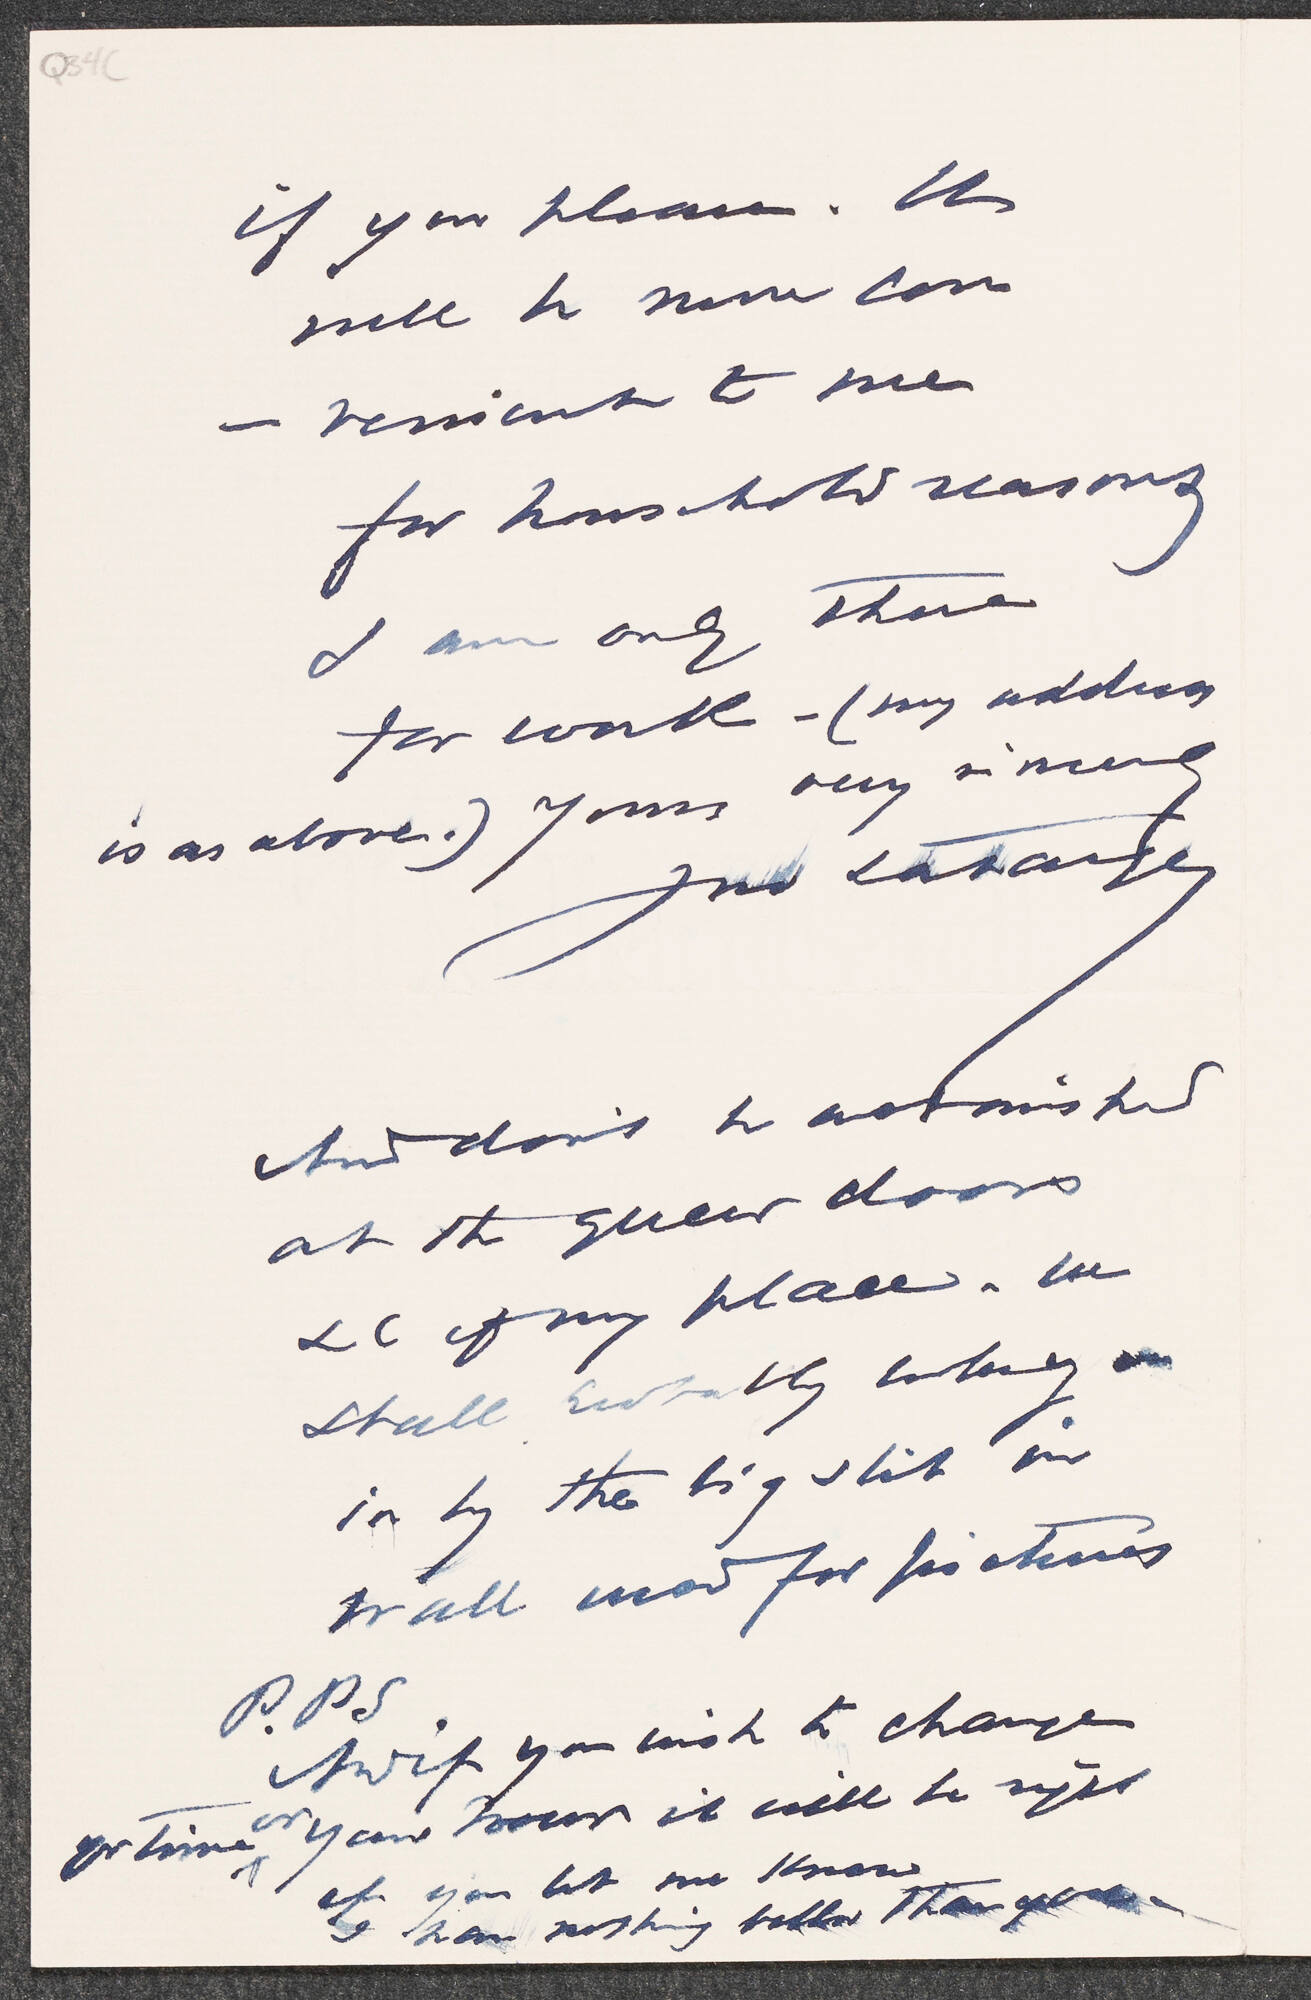 Q34C
if you please. It
will be more con
- venient to me
for household reasons
I am only there
for work - (my address
is as above.) Yours very sincerely
Jno LaFarge
And don't be astonished
at the queer doors
&c of my place. We
shall probably bring
in by the big slit in
wall used for pictures
P.P.S.
And if you wish to change
or time or your hour it will be right
if you let me know
I have nothing better than